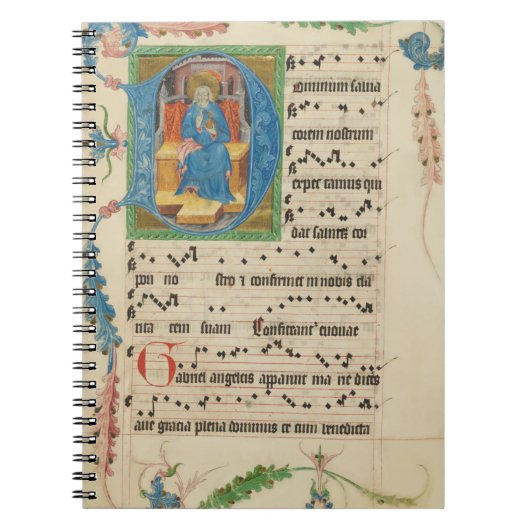 Dominum salua
torem nostrum
expec tamus qui
dat sanitẽ coꝛ
poꝛi no stro ⁊ confirmet in nobis cla
rita tem suam Confiteant᷑ euouae
Gabꝛiel angelus apparuit ma rie dicẽs
aue gracia plena dominus te cum benedicta